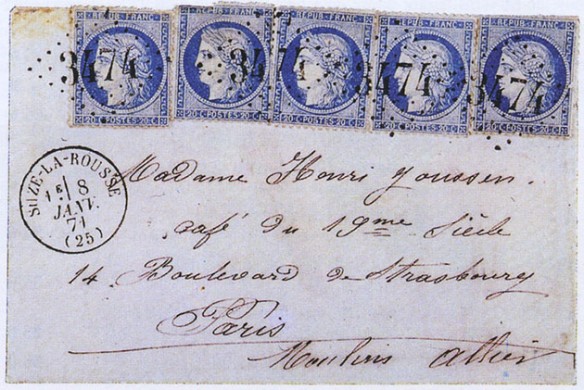 REPUB·FRANC REPUB·FRANC REPUB·FRANC REPUB·FRANC REPUB·FRANC
3474 3474 3474 3474
20 C·POSTES·20 C· 20 C·POSTES·20 C· 20 C·POSTES·20 C· 20 C·POSTES·20 C· 20 C·POSTES·20 C·
SUZE-LA-ROUSSE
1E 8
JANV.
71
(25)
Madame Henri Youssen
café du 19ème Siècle
14 Boulevard de Strasbourg
Paris
Moulins Allier